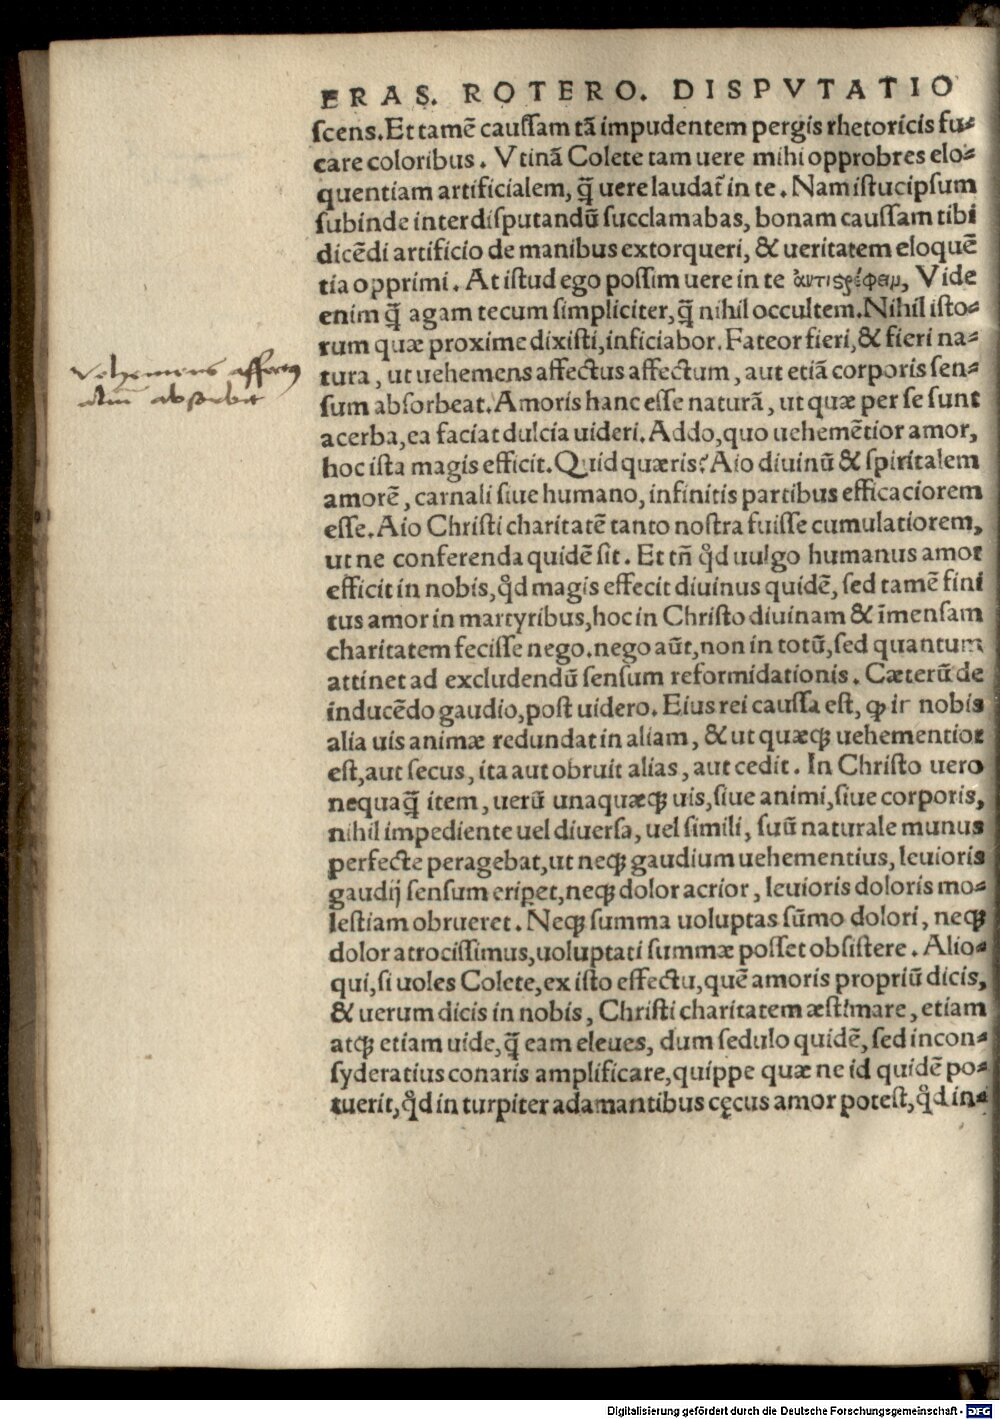 ERAS. ROTERO. DISPVTATIO
scens. Et tamē caussam tā impudentem pergis rhetoricis fu-
care coloribus. Vtinā Colete tam uere mihi opprobres elo-
quentiam artificialem, q̄ uere laudat̄ in te. Nam istuc ipsum
subinde inter disputandū succlamabas, bonam caussam tibi
dicēdi artificio de manibus extorqueri, & ueritatem eloquē
tia opprimi. At istud ego possim uere in te ἀντιστρέφειν, Vide
enim q̄ agam tecum simpliciter, q̄ nihil occultem. Nihil isto-
rum quæ proxime dixisti, inficiabor. Fateor fieri, & fieri na-
tura, ut uehemens affectus affectum, aut etiā corporis sen-
Vehemens affectus
aliū absorbet
sum absorbeat. Amoris hanc esse naturā, ut quæ per se sunt
acerba, ea faciat dulcia uideri. Addo, quo uehemētior amor,
hoc ista magis efficit. Quid quæris? Aio diuinū & spiritalem
amorē, carnali siue humano, infinitis partibus efficaciorem
esse. Aio Christi charitatē tanto nostra fuisse cumulatiorem,
ut ne conferenda quidē sit. Et tn̄ qd̄ uulgo humanus amor
efficit in nobis, qd̄ magis effecit diuinus quidē, sed tamē fini
tus amor in martyribus, hoc in Christo diuinam & īmensam
charitatem fecisse nego. nego aūt, non in totū, sed quantum
attinet ad excludendū sensum reformidationis. Cæterū de
inducēdo gaudio, post uidero. Eius rei caussa est, ꝙ in nobis
alia uis animæ redundat in aliam, & ut quæqꝫ uehementior
est, aut secus, ita aut obruit alias, aut cedit. In Christo uero
nequaq̄ item, uerū unaquæqꝫ uis, siue animi, siue corporis,
nihil impediente uel diuersa, uel simili, suū naturale munus
perfecte peragebat, ut neqꝫ gaudium uehementius, leuioris
gaudij sensum eriꝑet, neqꝫ dolor acrior, leuioris doloris mo-
lestiam obrueret. Neqꝫ summa uoluptas sūmo dolori, neqꝫ
dolor atrocissimus, uoluptati summæ posset obsistere. Alio-
qui, si uoles Colete, ex isto effectu, quē amoris propriū dicis,
& uerum dicis in nobis, Christi charitatem æstimare, etiam
atqꝫ etiam uide, q̄ eam eleues, dum sedulo quidē, sed incon-
syderatius conaris amplificare, quippe quæ ne id quidē po-
tuerit, qd̄ in turpiter adamantibus cęcus amor potest, qd̄ in-
Digitalisierung gefördert durch die Deutsche Forschungsgemeinschaft - DFG